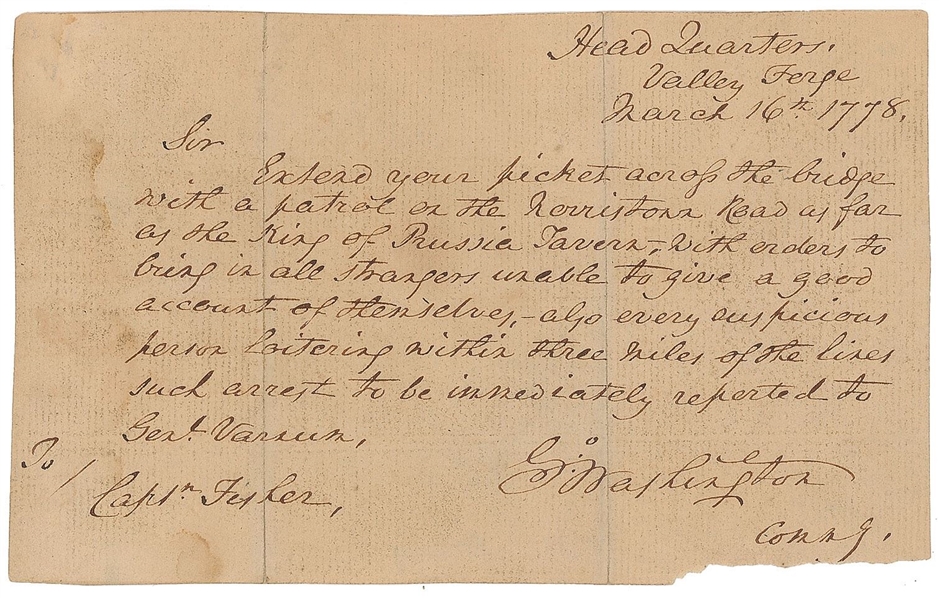 Head Quarters.
Valley Forge
March 16th 1778.
Sir
Extend your picket across the bridge
with a patrol on the Norristown Road as far
as the King of Prussia Tavern,- with orders to
bring in all strangers unable to give a good
account of themselves,- also every suspicious
person loitering within three miles of the lines
such arrest to be immediately reported to
Genl. Varnum,
To /
Captn Fisher,
Go. Washington
Commg.